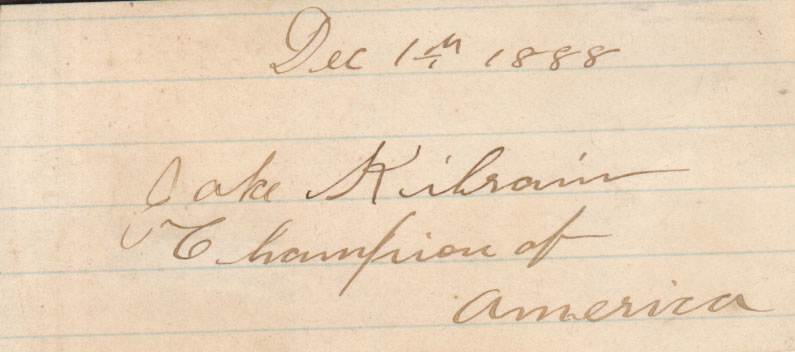 Dec 1th 1888
Jake Kilrain
Champion of
America